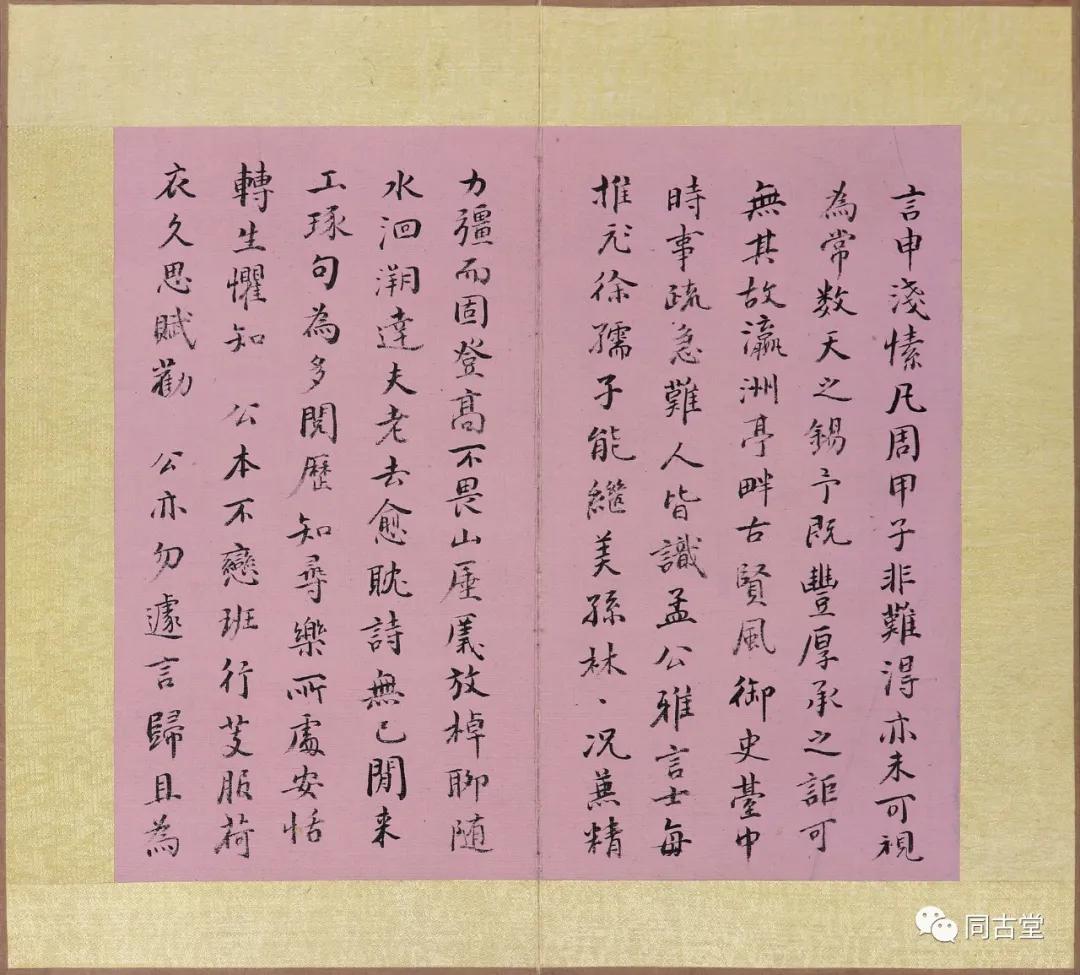 言申淺愫凡周甲子非難得亦未可視
為常数天之錫予既豐厚承之詎可
無其故瀛洲亭畔古賢風御史臺中
時事疏急難人皆識孟公雅言士每
推元徐孺子能繼美孫林、况蕪精
力彊而固登高不畏山厓厲放棹聊随
水洄溯達夫老去愈耽詩無己閒来
工琢句為多閱歷知尋樂所處安恬
轉生懼知 公本不戀班行芰服荷
衣久思賦勸 公亦勿遽言歸且為
同古堂